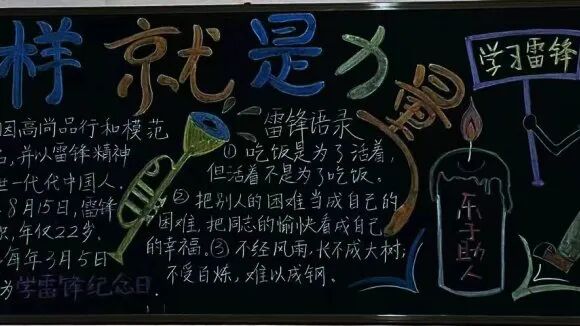 样就是力量
学习雷锋
因高尚品行和模范
名,并以雷锋精神
世一代代中国人.
8月15日,雷锋
年仅22岁.
每年3月5日
为学雷锋纪念日.
雷锋语录
①吃饭是为了活着,
但活着不是为了吃饭。
②把别人的困难当成自己的
困难,把同志的愉快看成自己
的幸福。③不经风雨,长不成大树;
不受百炼,难以成钢。
乐于助人